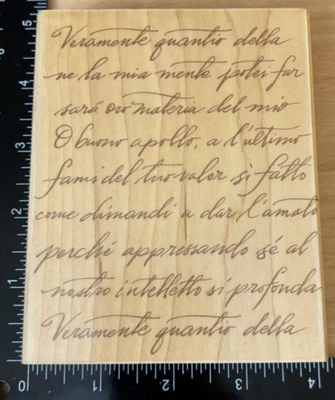 Veramente quantio della
ne la mia mente potei far
sará oro materia del mio
O buono apollo, a l'ultimo
fami del tuo valor si fatto
come dimandi a dar l'amato
perché appressando sé al
nostro intelletto si profonda
Veramente quantio della
5
4
3
2
1
0
0
1
2
3
4